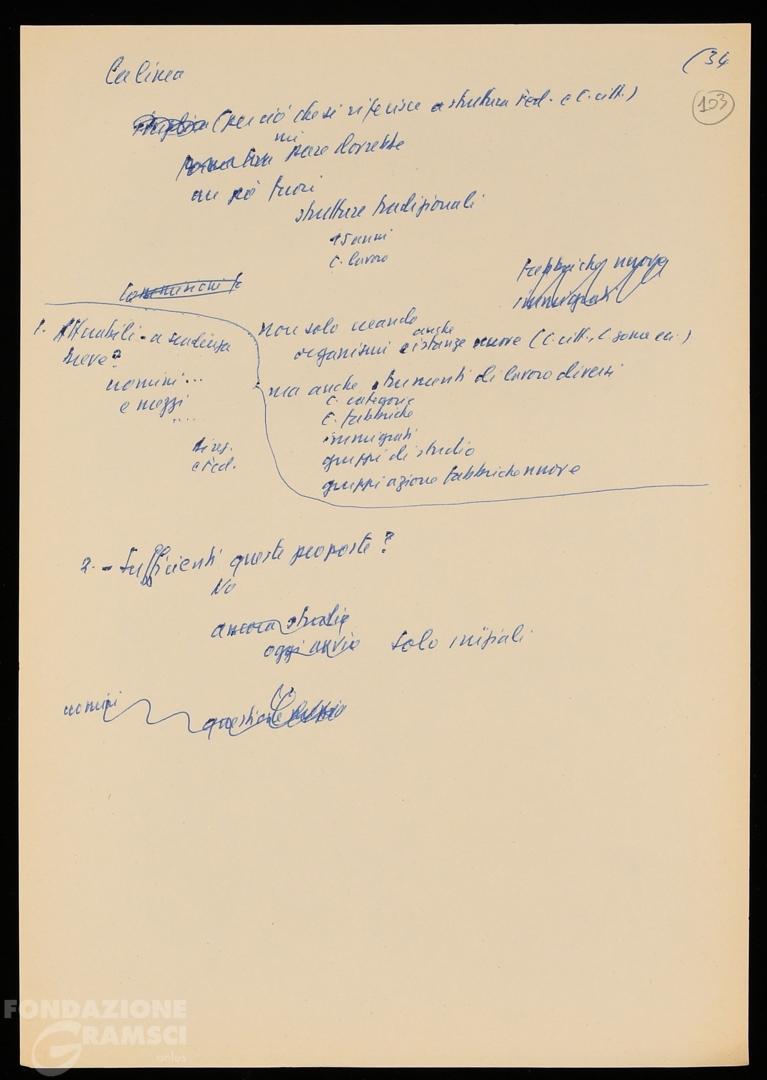 (34
103
La linea
(per ciò che si riferisce a struttura Fed. e C. citt.)
mi
pare dovrebbe
un po' fuori
strutture tradizionali
15 anni
C. lavoro
fabbriche nuove
immigrati
1. Attuabili - a scadenza
breve?
uomini...
e mezzi
....
e Fed.
non solo creando
anche
organismi e istanze nuove (C. citt., C. zona ecc.)
ma anche strumenti di lavoro diversi
C. categoria
C. fabbriche
immigrati
gruppi di studio
gruppi azione fabbriche nuove
2. - Sufficienti queste proposte?
No
ancora studio
oggi avvio solo iniziali
uomini
questione
FONDAZIONE
GRAMSCI
onlus